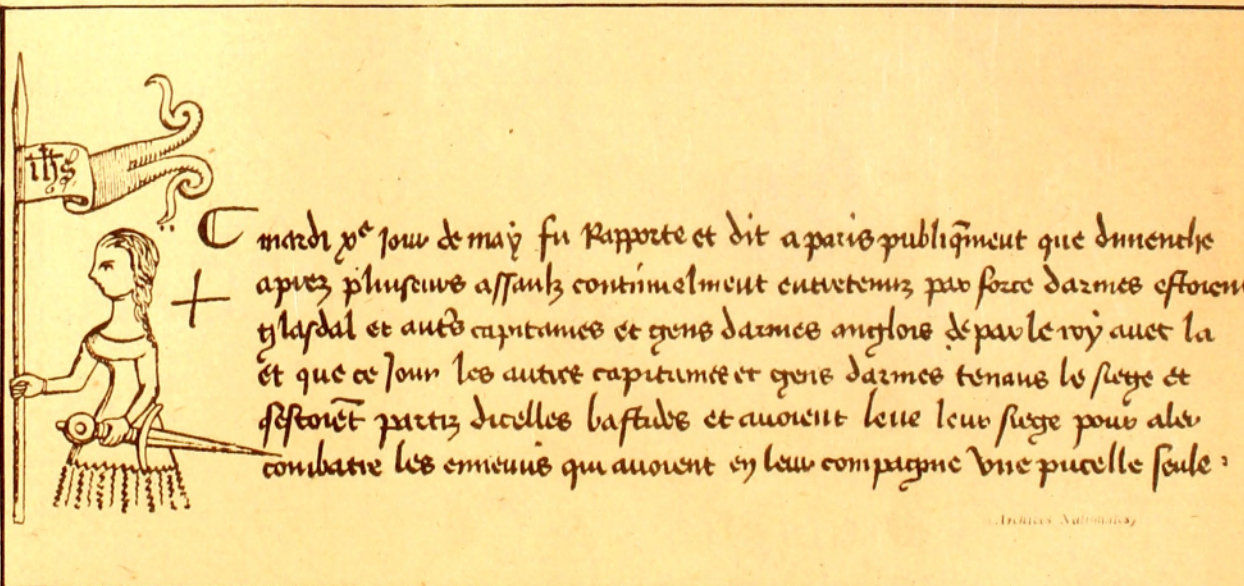 ihs
mardi xe jour de may fu Rapporte et dit a paris publiq̄ment que dimenche
aprez pluiseurs assaulz continuelment entretenuz par force darmes estoient
glasdal et aut̄s capitaines et gens darmes anglois de par le roy avec la
et que ce jour les autres capitaines et gens darmes tenans le siege et
sestoiēt partiz dicelles bastides et avoient leve leur siege pour aler
combatre les ennemis qui avoient en leur compaignie une pucelle seule
Archives Nationales)